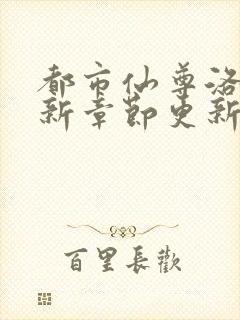 都市仙尊洛
新章节更新
百里長歡